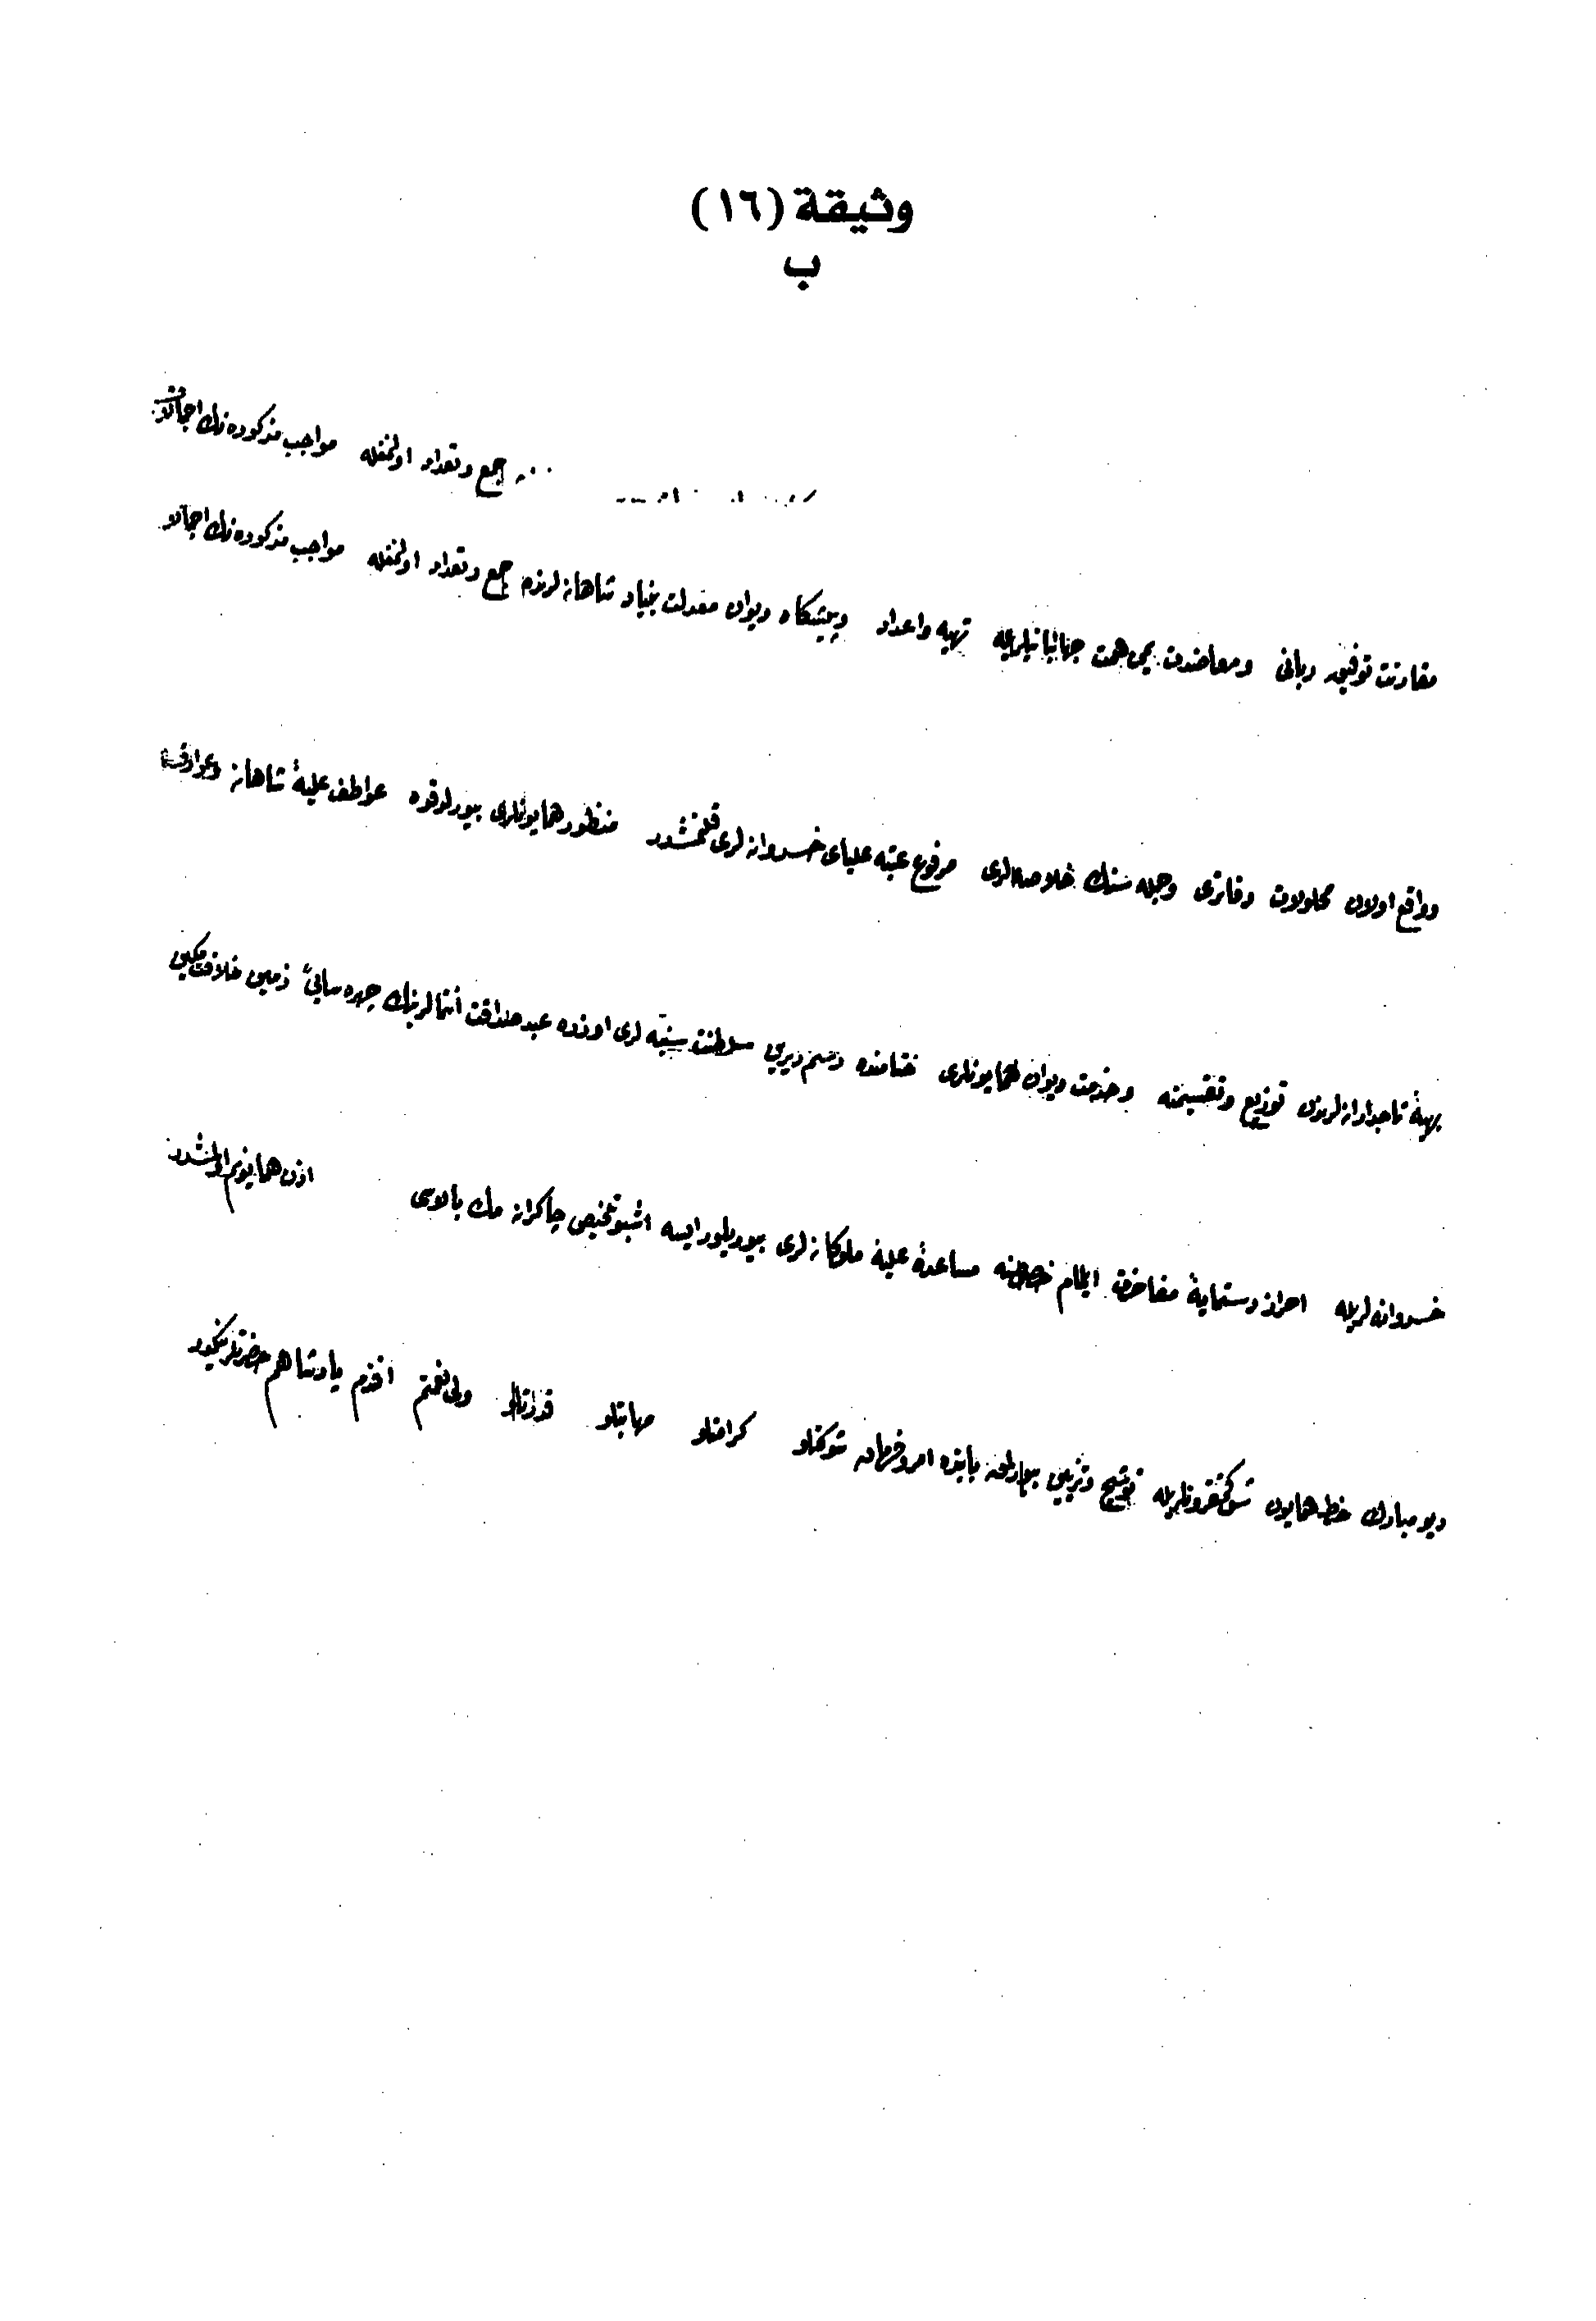 وثيقة (١٦)
ب
جمع وتعداد اولنمغله مواجب مذكوره نك اجمالات
مقارنت توفيق ربانى ومعاضدت يمن همت جهانبانيلريله تهيه واعداد وپيشكاه ديوان معدلت بنياد شاهانه لرنده جمع وتعداد اولنمغله مواجب مذكوره نك اجمالات
وواقع اولان محلولات دفاترى وجمله سنك خلاصه لرى مرفوع عتبه علياى خسروانه لرى قلنمشدر منظور همايونلرى بيورلدقده عواطف عليۀ شاهانه وعوارف
بهيۀ تاجدارانه لرندن توزيع وتقسيمنه وخدمت ديوان همايونلرى ختامنده رسم ديرين سلطنت سنيه لرى اوزره عبد صداقت انتمالرينك چهره سايئ زمين خلافت مكين
خسروانه لريله احراز دستمايۀ مفاخرت ايلمام خصوصنه مساعدۀ عليۀ ملوكانه لرى بيوريلور ايسه اشبو تلخيص چاكرانه مك بالاسى اذن همايونم اولمشدر
ديو مبارك خط همايون شوكتمقرونلريله توشيح وتزيين بيورلمق بابنده امر وفرمان شوكتلو كرامتلو مهابتلو قدرتلو ولى نعمتم افندم پادشاهم حضرتلرينكدر